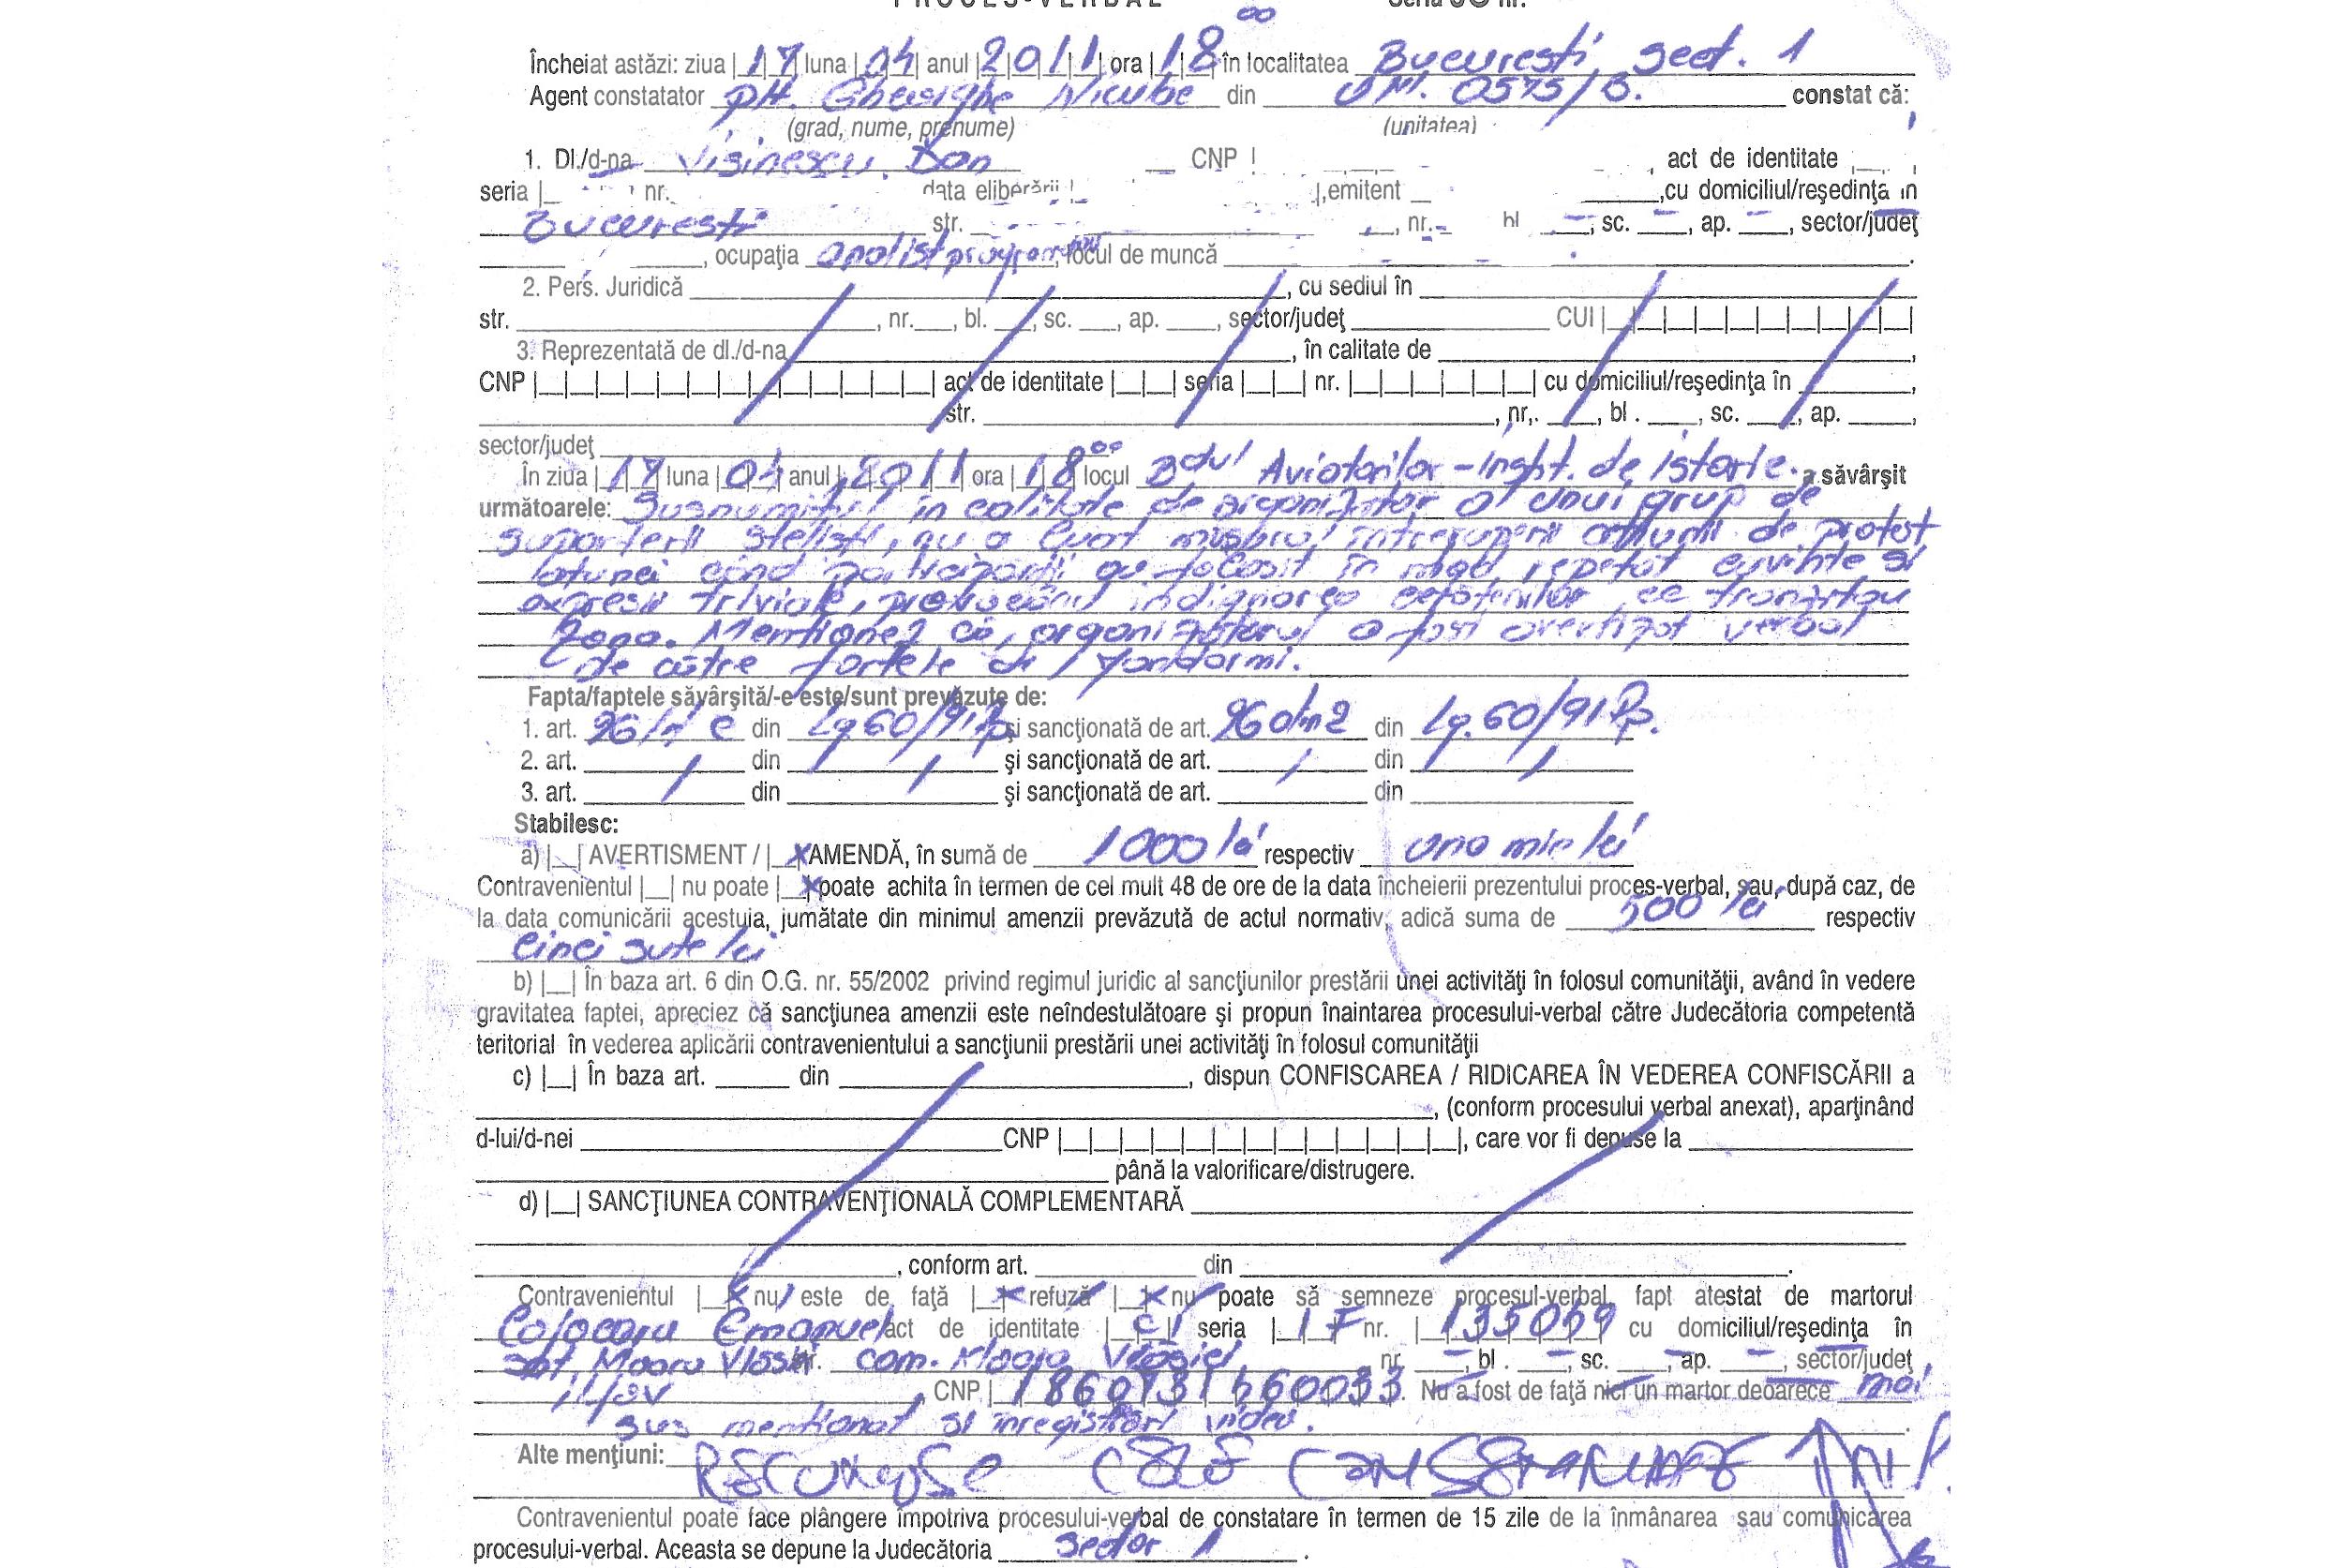 PROCES-VERBAL Seria nr.
Încheiat astăzi: ziua 17 luna 04 anul 2011 ora 18 00 în localitatea Bucuresti, sect. 1
Agent constatator plt. Gheorghe Niculae din UM. 0575/B. constat că:
(grad, nume, prenume) (unitatea)
1. Dl./d-na Visinescu Dan CNP , act de identitate
seria nr. data eliberării ,emitent ,cu domiciliul/reşedinţa în
Bucuresti str. , nr. bl , sc. , ap. , sector/judeţ
, ocupaţia analist programator, locul de muncă .
2. Pers. Juridică , cu sediul în
str. , nr. , bl. , sc. , ap. , sector/judeţ CUI
3. Reprezentată de dl./d-na , în calitate de ,
CNP act de identitate seria nr. cu domiciliul/reşedinţa în ,
str. , nr,. , bl . , sc. , ap. ,
sector/judeţ
În ziua 17 luna 04 anul 2011 ora 18 00 locul Bdul Aviatorilor - Inst. de istorie. a săvârşit
următoarele: Susnumitul in calitate de organizator al unui grup de
suporterii stelisti, nu a luat măsura întreruperii actiunii de protest
atunci când participanții au folosit în mod repetat cuvinte si
expresii triviale, provocând indignarea cetătenilor ce tranzitau
zona. Mentionez că, organizatorul a fost avertizat verbal
de către fortele de jandarmi.
Fapta/faptele săvârşită/-e este/sunt prevăzute de:
1. art. 26/1 e din Lg 60/91 R şi sancţionată de art. 26 alin 2 din Lg. 60/91 R.
2. art. din şi sancţionată de art. din
3. art. din şi sancţionată de art. din
Stabilesc:
a) AVERTISMENT / X AMENDĂ, în sumă de 1000 lei respectiv una mie lei
Contravenientul nu poate X poate achita în termen de cel mult 48 de ore de la data încheierii prezentului proces-verbal, sau, după caz, de
la data comunicării acestuia, jumătate din minimul amenzii prevăzută de actul normativ, adică suma de 500 lei respectiv
cinci sute lei
b) În baza art. 6 din O.G. nr. 55/2002 privind regimul juridic al sancţiunilor prestării unei activităţi în folosul comunităţii, având în vedere
gravitatea faptei, apreciez că sancţiunea amenzii este neîndestulătoare şi propun înaintarea procesului-verbal către Judecătoria competentă
teritorial în vederea aplicării contravenientului a sancţiunii prestării unei activităţi în folosul comunităţii
c) În baza art. din , dispun CONFISCAREA / RIDICAREA ÎN VEDEREA CONFISCĂRII a
, (conform procesului verbal anexat), aparţinând
d-lui/d-nei CNP , care vor fi depuse la
până la valorificare/distrugere.
d) SANCŢIUNEA CONTRAVENŢIONALĂ COMPLEMENTARĂ
, conform art. din .
Contravenientul X nu este de faţă X refuză X nu poate să semneze procesul-verbal, fapt atestat de martorul
Cojocaru Emanuel act de identitate CI seria IF nr. 135059 cu domiciliul/reşedinţa în
sat. Moara Vlasiei com. Moara Vlasiei, nr. , bl . , sc. , ap. , sector/judeţ
ilfov , CNP 1860731460033. Nu a fost de faţă nici un martor deoarece mai
sus mentionat si inregistrări video.
Alte menţiuni:
Contravenientul poate face plângere împotriva procesului-verbal de constatare în termen de 15 zile de la înmânarea sau comunicarea
procesului-verbal. Aceasta se depune la Judecătoria sector 1 .